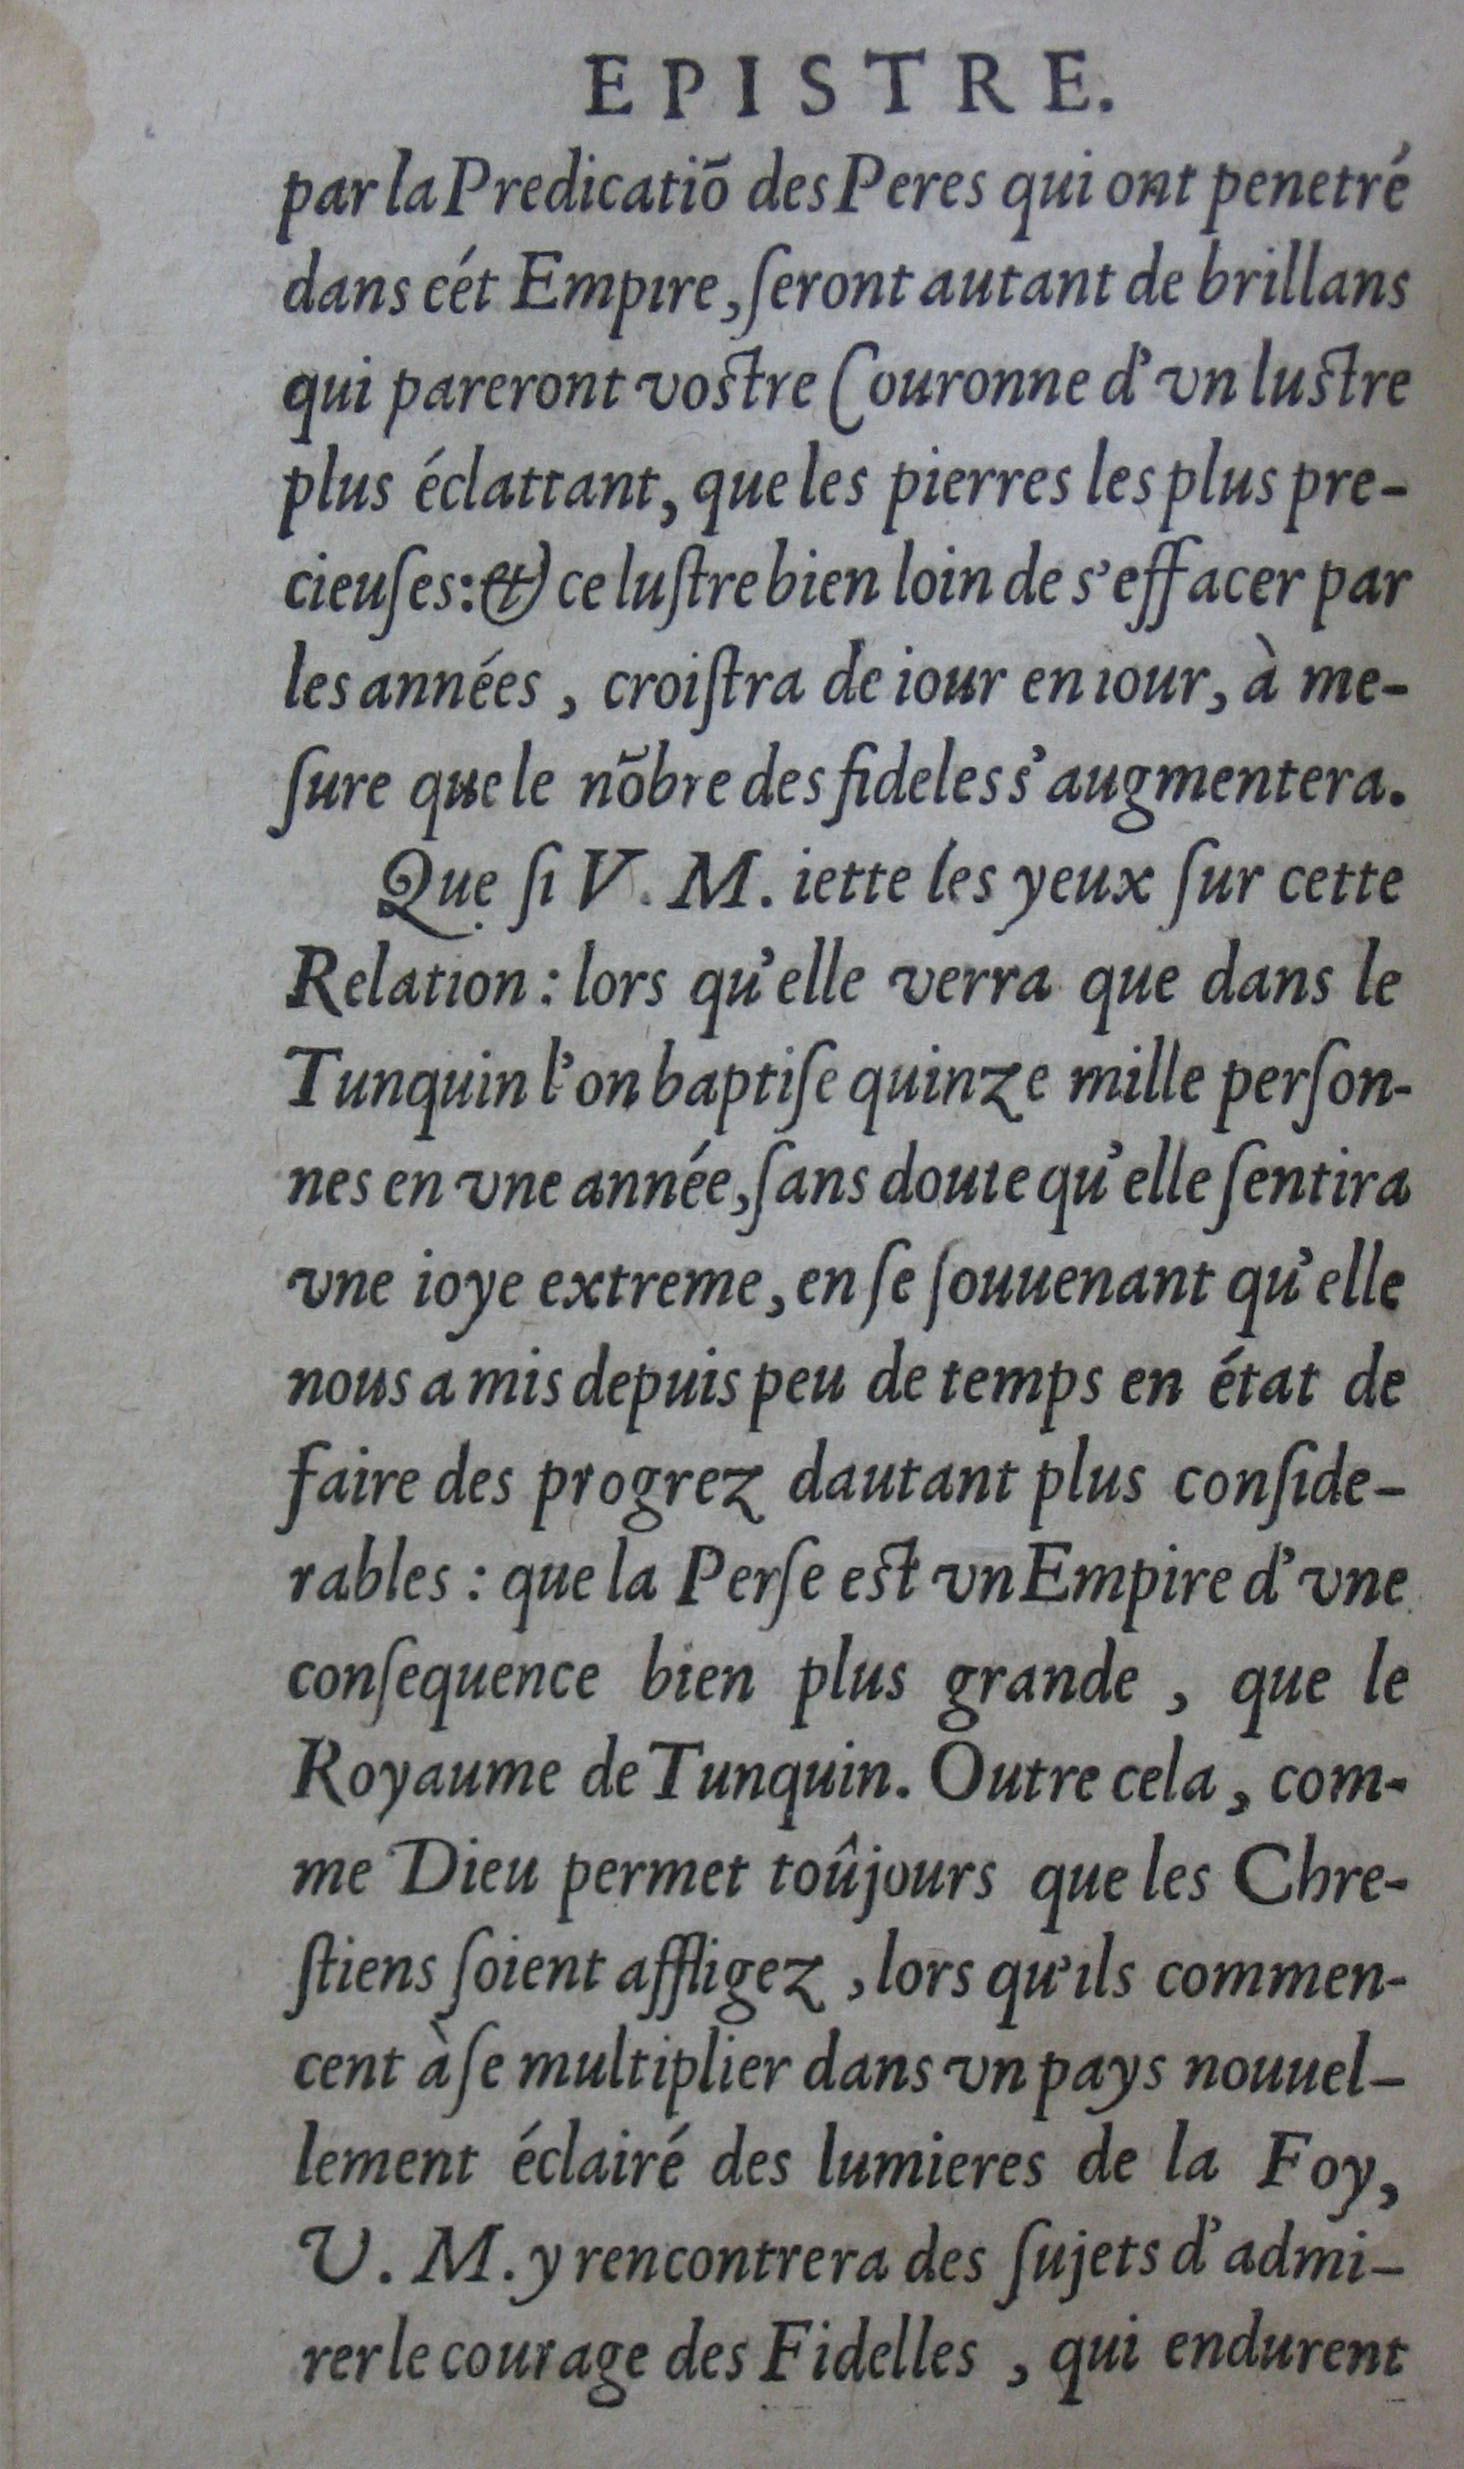 EPISTRE.
par la Predicatiõ des Peres qui ont penetré
dans cét Empire, ſeront autant de brillans
qui pareront voſtre Couronne d'vn luſtre
plus éclattant, que les pierres les plus pre-
cieuſes: & ce luſtre bien loin de s'effacer par
les années, croiſtra de iour en iour, à me-
ſure que le nõbre des fideles s'augmentera.
Que ſi V. M. iette les yeux ſur cette
Relation: lors qu'elle verra que dans le
Tunquin l'on baptiſe quinze mille perſon-
nes en vne année, ſans doute qu'elle ſentira
vne ioye extreme, en ſe ſouuenant qu'elle
nous a mis depuis peu de temps en état de
faire des progrez dautant plus conſide-
rables: que la Perſe eſt vn Empire d'vne
conſequence bien plus grande, que le
Royaume de Tunquin. Outre cela, com-
me Dieu permet toûjours que les Chre-
ſtiens ſoient affligez, lors qu'ils commen-
cent à ſe multiplier dans vn pays nouuel-
lement éclairé des lumieres de la Foy,
V. M. y rencontrera des ſujets d'admi-
rer le courage des Fidelles, qui endurent